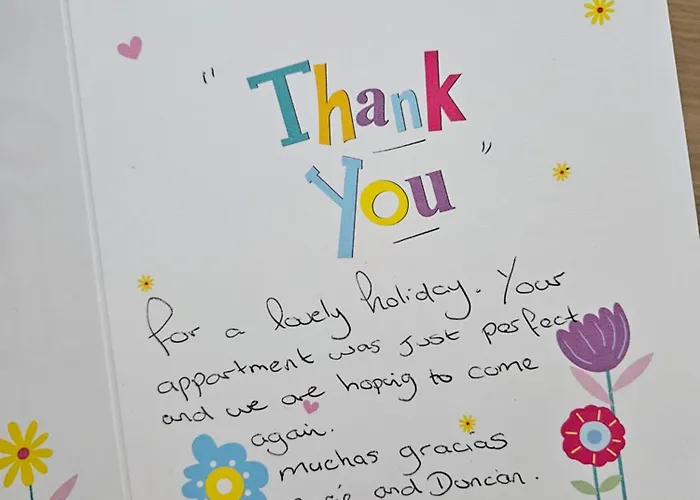 " Thank
You "
for a lovely holiday. Your
appartment was just perfect
and we are hoping to come
again.
muchas gracias
and Duncan.